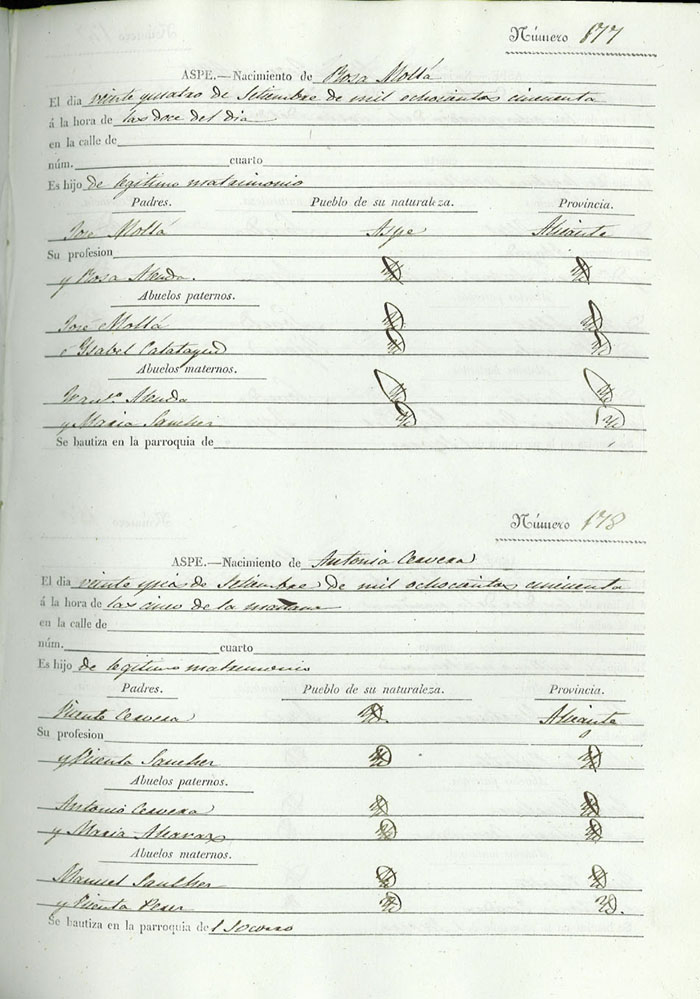 Número 177
ASPE.—Nacimiento de Rosa Mollá
El dia veinte quatro de Setiembre de mil ochocientos cincuenta
á la hora de las doce del dia
en la calle de
núm. cuarto
Es hijo de legitimo matrimonio
Padres. Pueblo de su naturaleza. Provincia.
José Mollá Aspe Alicante
Su profesion
y Rosa
Abuelos paternos.
José Mollá
é Ysabel Calatayud
Abuelos maternos.
y Maria Sanchez
Se bautiza en la parroquia de
Número 178
ASPE.—Nacimiento de Antonia Cervera
El dia veinte de Setiembre de mil ochocientos cincuenta
á la hora de las cinco de la mañana
en la calle de
núm. cuarto
Es hijo de legitimo matrimonio
Padres. Pueblo de su naturaleza. Provincia.
Vicente Cervera Alicante
Su profesion
y Vicenta Sanchez
Abuelos paternos.
Antonio Cervera
y Maria
Abuelos maternos.
Manuel Sanchez
y Vicenta
Se bautiza en la parroquia del Socorro